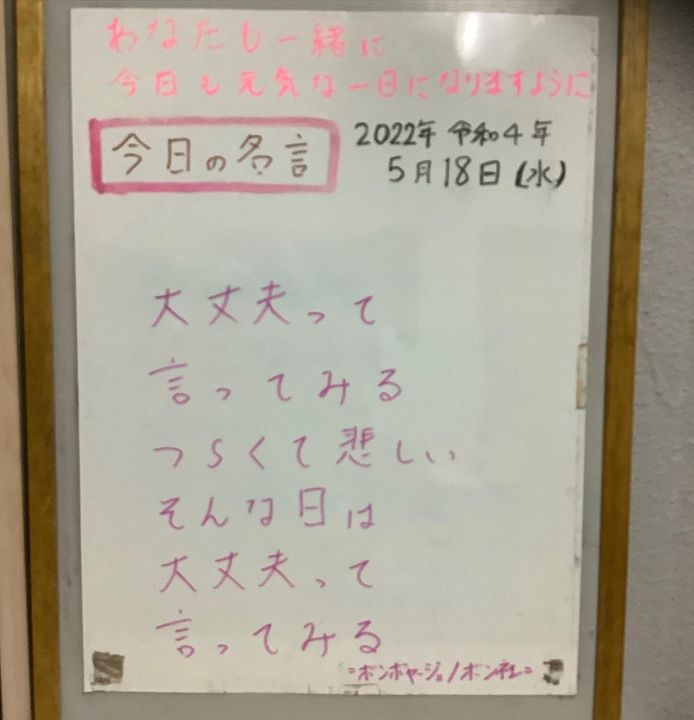 あなたも一緒に
今日も元気な一日になりますように
今日の名言
2022年 令和4年
5月18日(水)
大丈夫って
言ってみる
つらくて悲しい
そんな日は
大丈夫って
言ってみる
=ボンボヤージュ/ボン社=